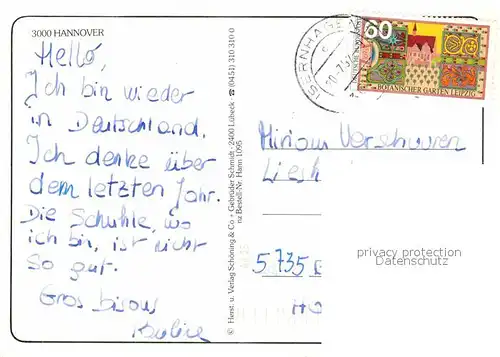 3000 HANNOVER
Hello,
Ich bin wieder
in Deutschland.
Ich denke über
dem letzten Jahr.
Die Schuhle, wo
ich bin, ist nicht
so gut.
Gros bisous
© Herst. u. Verlag Schöning & Co + Gebrüder Schmidt · 2400 Lübeck · ☎ (0451) 31 03 10
nz Bestell-Nr. Hann 1095
ISERNHAGEN
60
BOTANISCHER GARTEN LEIPZIG
Miriam Verschuuren
Liesh
5735
privacy protection
Datenschutz